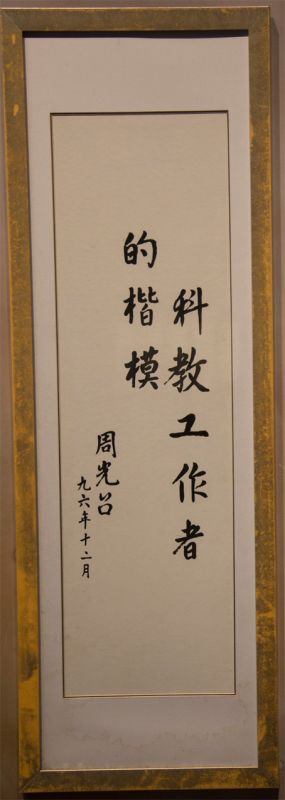 科教工作者
的楷模
周光召
九六年十二月